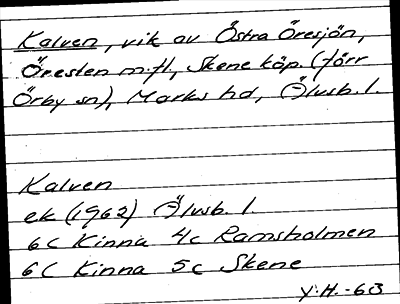 Kalven, vik av Östra Öresjön,
Öresten m.fl., Skene köp. (förr
Örby sn), Marks hd, Älvsb. l.
Kalven
ek (1962) Älvsb. l.
6C Kinna 4c Ramsholmen
6C Kinna 5c Skene
Y.H. -63